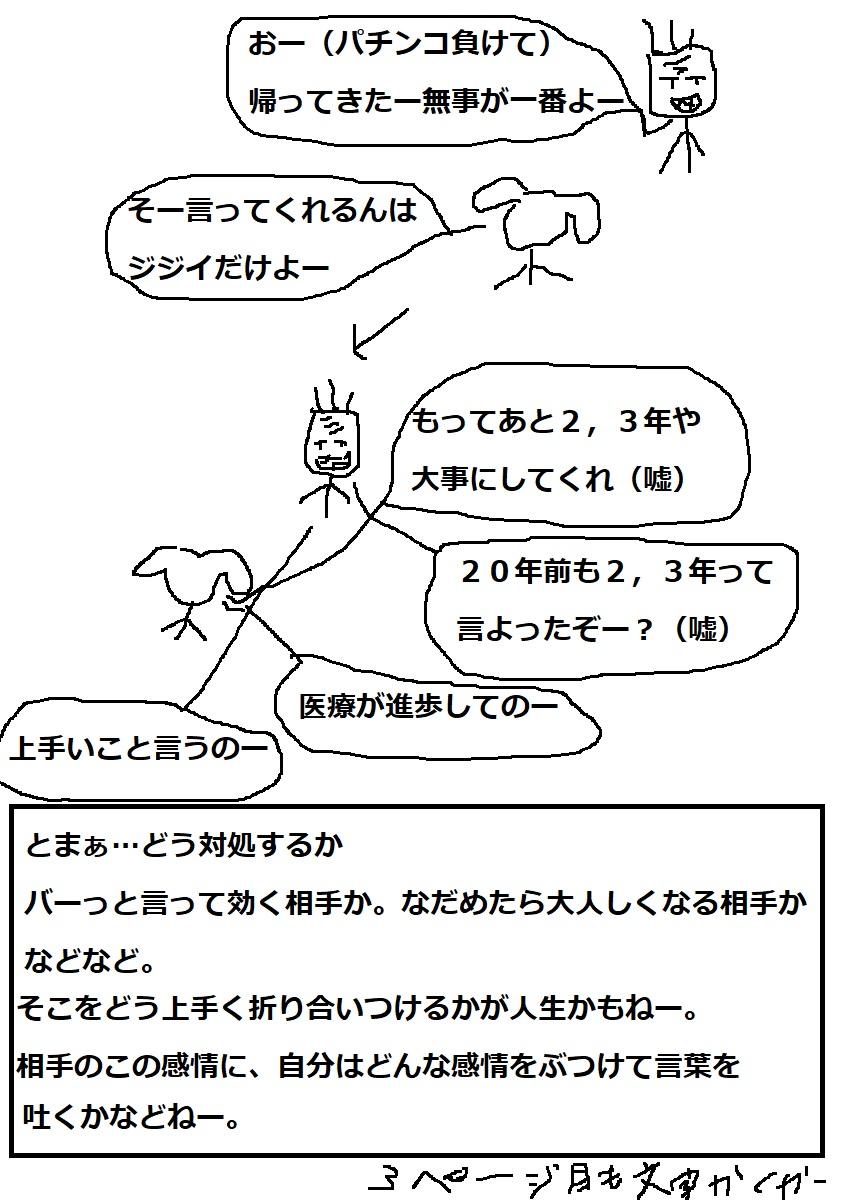 おー（パチンコ負けて）
帰ってきたー無事が一番よー
そー言ってくれるんは
ジジイだけよー
もってあと２，３年や
大事にしてくれ（嘘）
２０年前も２，３年って
言よったぞー？（嘘）
医療が進歩してのー
上手いこと言うのー
とまぁ…どう対処するか
バーっと言って効く相手か。なだめたら大人しくなる相手か
などなど。
そこをどう上手く折り合いつけるかが人生かもねー。
相手のこの感情に、自分はどんな感情をぶつけて言葉を
吐くかなどねー。
３ページ目も文字かくがー